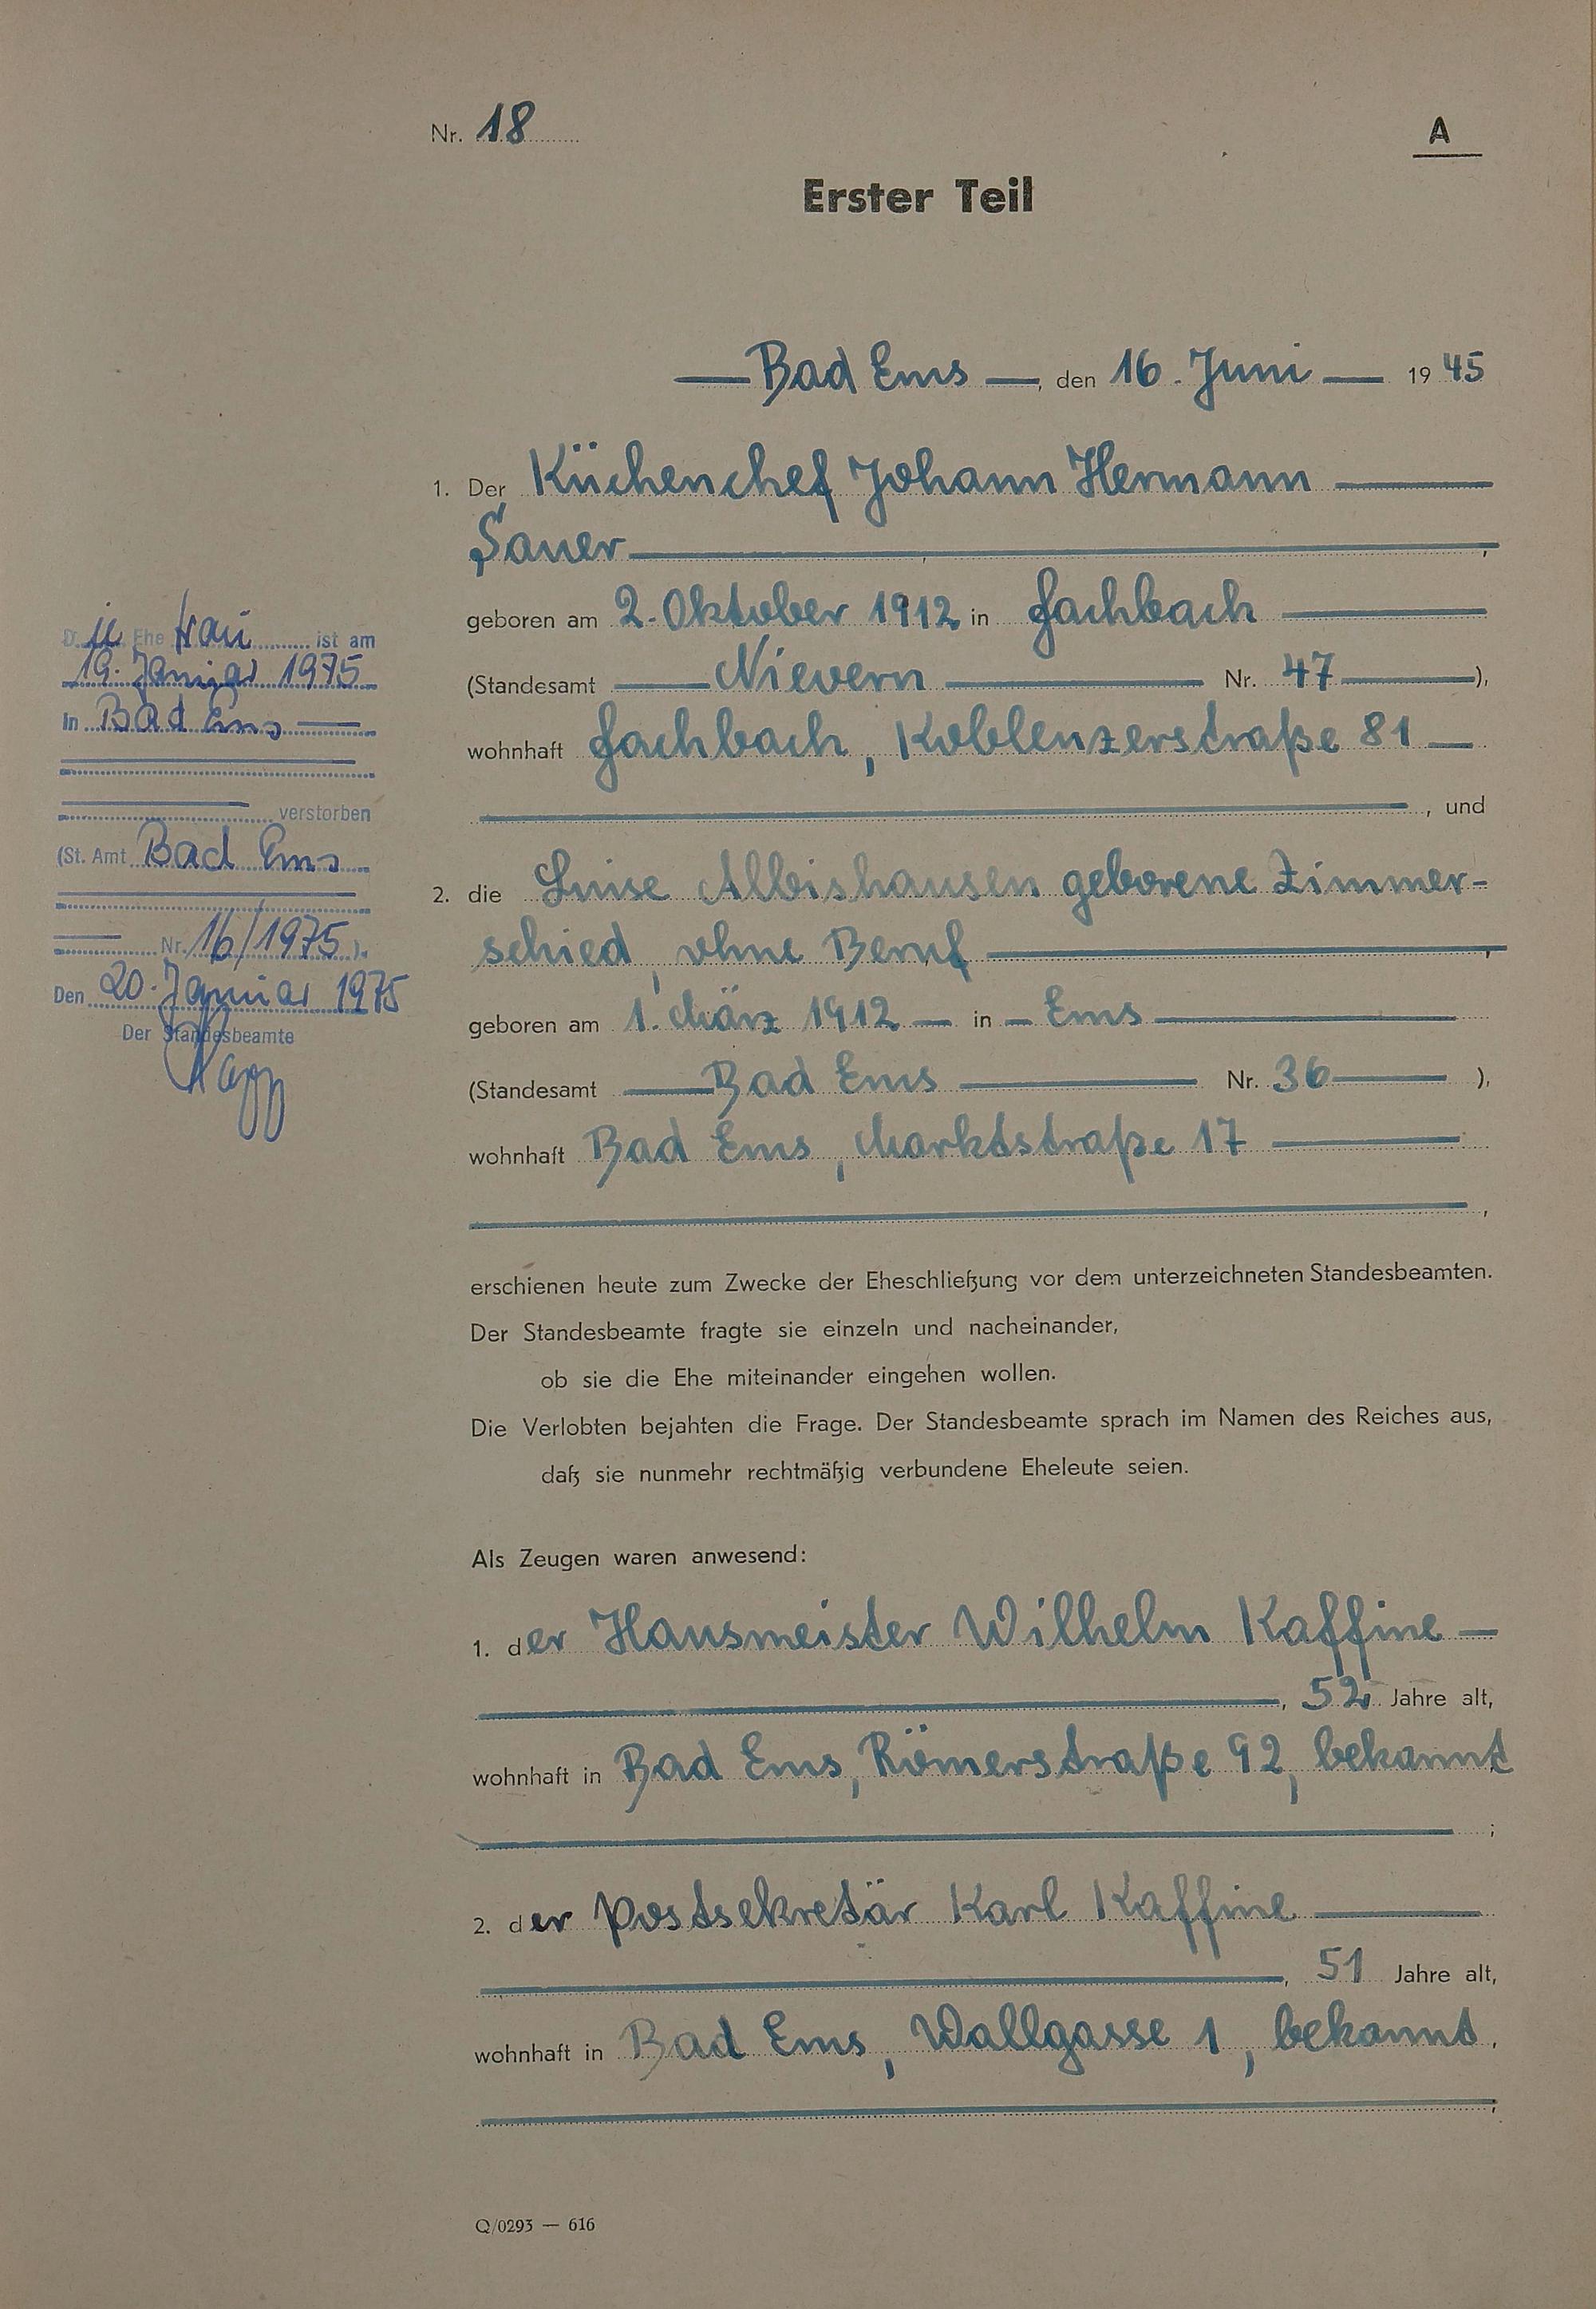 Nr. 18
A
Erster Teil
Bad Ems, den 16. Juni 1945
1. Der Küchenchef Johann Hermann
Sauer,
geboren am 2. Oktober 1912 in Fachbach
(Standesamt Nievern Nr. 47),
wohnhaft Fachbach, Koblenzerstraße 81
, und
2. die Luise Albishausen geborene Zimmer-
schied, ohne Beruf,
geboren am 1. März 1912 in Ems
(Standesamt Bad Ems Nr. 36),
wohnhaft Bad Ems, Marktstraße 17
,
erschienen heute zum Zwecke der Eheschließung vor dem unterzeichneten Standesbeamten.
Der Standesbeamte fragte sie einzeln und nacheinander,
ob sie die Ehe miteinander eingehen wollen.
Die Verlobten bejahten die Frage. Der Standesbeamte sprach im Namen des Reiches aus,
daß sie nunmehr rechtmäßig verbundene Eheleute seien.
Als Zeugen waren anwesend:
1. der Hausmeister Wilhelm Kaffine
, 52 Jahre alt,
wohnhaft in Bad Ems, Römerstraße 92, bekannt
;
2. der Postsekretär Karl Kaffine
, 51 Jahre alt,
wohnhaft in Bad Ems, Wallgasse 1, bekannt.
,
Q/0293 — 616
Die Ehefrau ist am
19. Januar 1975
in Bad Ems
verstorben
(St. Amt Bad Ems
Nr. 16/1975).
Den 20. Januar 1975
Der Standesbeamte